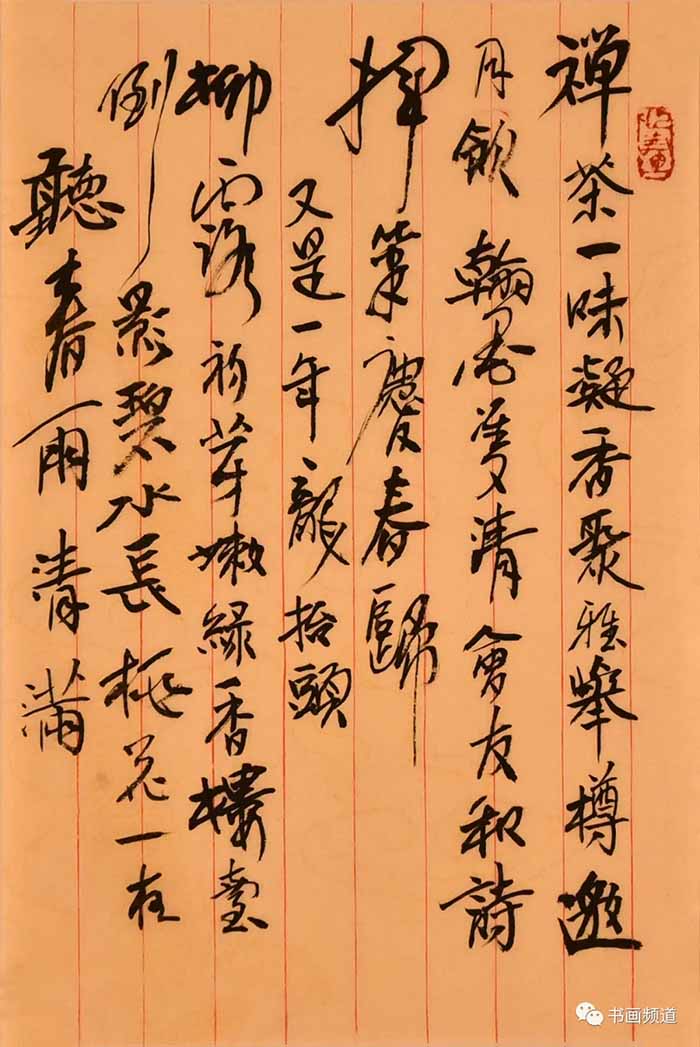 禅茶一味凝香聚雅舉樽邀
月飲翰墨雙清會友和詩
揮筆慶春歸
又是一年龍抬頭
柳露初芽嫩綠香樓臺
倒影碧水長桃花一枝
聽春雨清滿
书画频道